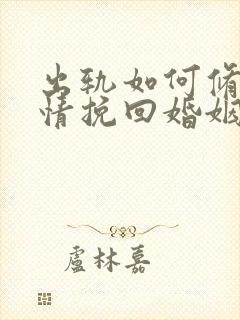 出轨如何修
情挽回婚姻
盧林嘉